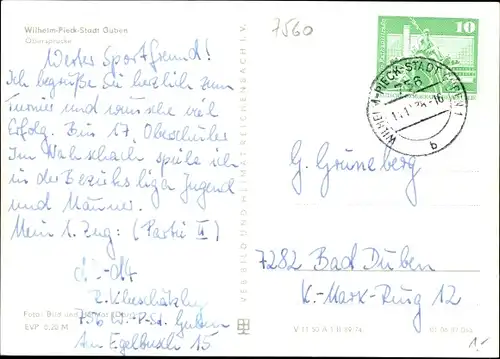 Wilhelm-Pieck-Stadt Guben
7560
10
Werter Sportfreund!
Ich begrüße Sie herzlich zum
Turnier und wünsche viel
Erfolg. Bin 17, Oberschüler
Im Wahkschach spiele ich
in der Bezirksliga Jugend
und Männer.
Mein 1. Zug: (Partie II)
d2-d4
756 W.-P.-St. Guben
Am Egelbusch 15
Foto: Bild und Heimat
EVP 0,20 M
VEB BILD UND HEIMAT REICHENBACH I. V.
WILHELM-PIECK-STADT GUBEN 1
756
b
G. Grüneberg
7282 Bad Düben
K.-Marx-Ring 12
V 11 50 A 1
1.-